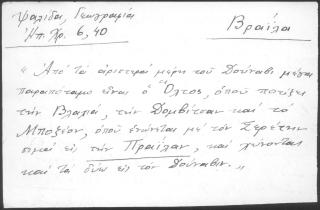 Ψαλίδα, Γεωγραφία
Ἠπ. Χρ. 6, 40
Βραΐλα
« Ἀπό τά ἀριστερά μέρη τοῦ Δούναβι μέγας
παραπόταμος εἶναι ὁ Ὄλτος, ὁποῦ ποτίζει
τήν Βλαχιά, τήν Δομβίτσαν καί τό
, ὁποῦ ἑνώνεται μέ τόν Σερέτην
σιμά εἰς τήν Πραΐλαν, καί χύνονται
καί τά δύω εἰς τόν Δούναβιν. »